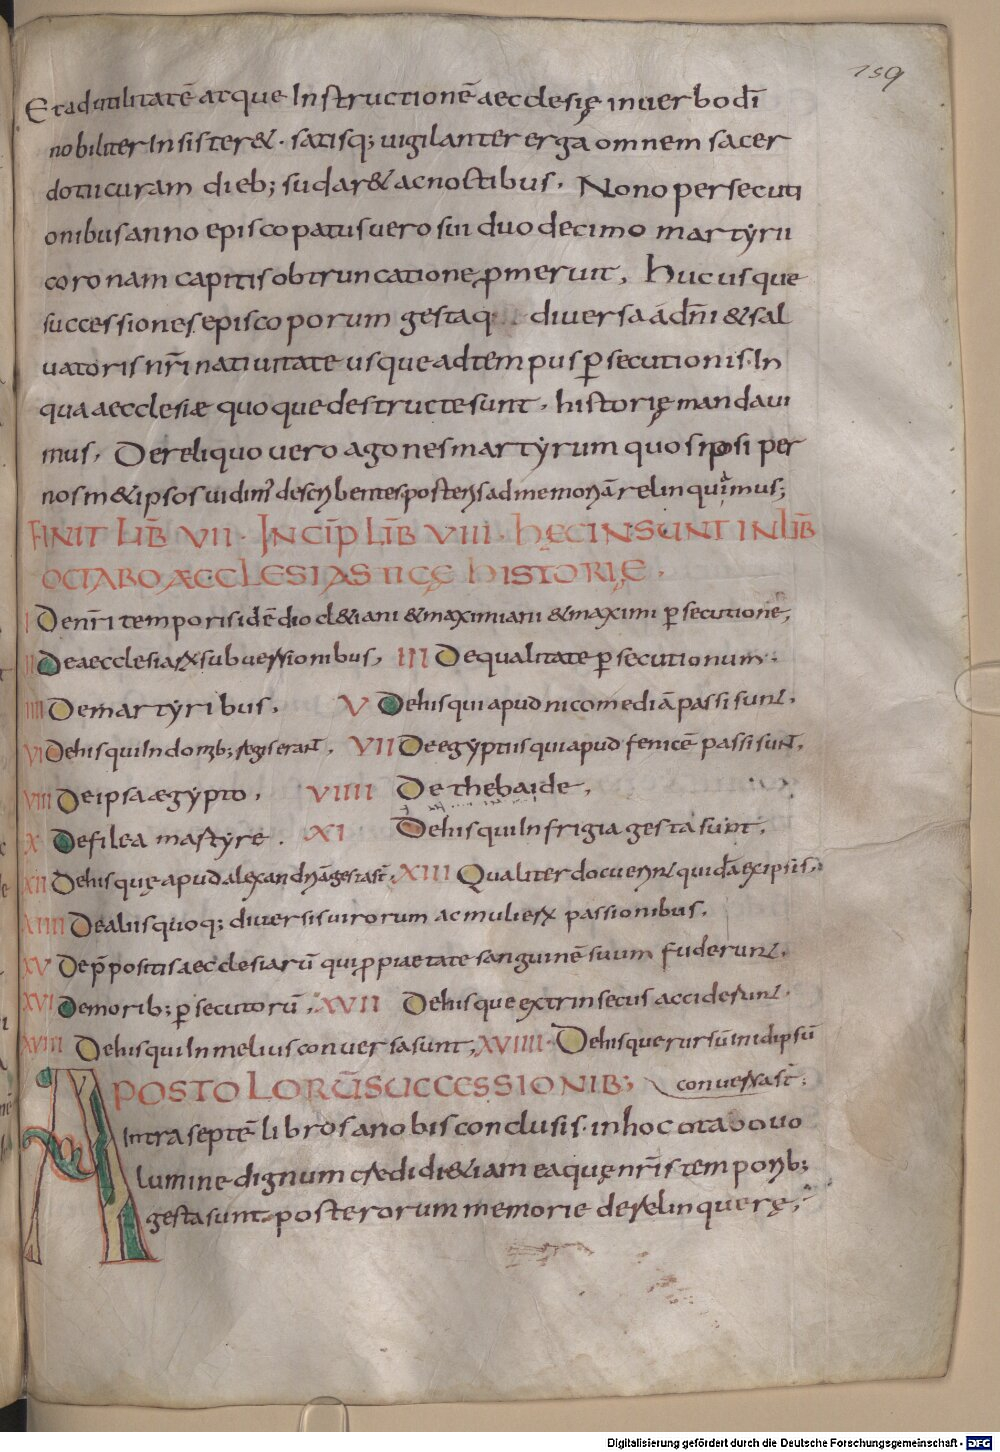 159
Et ad utilitatē atque Instructionē aecclesię in uerbo dī
nobiliter Insister&. satisq; uigilanter erga omnem sacer
dotii curam dieb; sudar& ac noctibus. Nono persecuti
onibus anno episcopatus uero sui duodecimo martyrii
coronam capitis obtruncatione ꝓmeruit, Huc usque
successiones episcoporum gestaq diuersa a dn̄i & sal
uatoris nr̄i natiuitate usque ad tempus ꝑsecutionis. In
qua aecclesiæ quoque destructe sunt, historię mandaui
mus, De reliquo uero agones martyrum quos ipsi per
nosm&ipsos uidim' describentes, posteris ad memoriā relinquimus;
FINIT LIB̄ VII. INCIP̄ LIB̄ VIII. HĘC INSUNT IN LIB̄
OCTABO ÆCCLESIASTICĘ HISTORIĘ.
I De nr̄i temporis idē diocl&iani & maximiani & maximi ꝑsecutione,
II De aecclesiaꝝ subuersionibus, III De qualitate ꝑsecutionum.
IIII De martyribus, V De his qui apud nicomediā passi sunt.
VI De his qui In domib; regis erant, VII De egyptiis qui apud fenicē passi sunt,
VIII De ipsa ægypto, VIIII De thebaide,
X De filea martyre. XI De his qui In frigia gesta sunt.
XII De his quę apud alexandriā gesta st̄, XIII Qualiter docuerint quidā ex ipsis,
XIIII De aliis quoq; diuersis uirorum ac mulieꝝ passionibus.
XV De p̄positis aecclesiarū qui ꝓ piaetate sanguinē suum fuderunt.
XVI De morib; ꝑsecutorū, XVII De his que extrinsecus acciderunt.
XVIII De his qui In melius conuersa sunt, XVIIII De his que rursū in idipsū
conuersa st̄;
APOSTOLORŪ SUCCESSIONIB;
Intra septē libros a nobis conclusis. in hoc octabo uo
lumine dignum credidi &iam ea quę nr̄is temporib;
gesta sunt posterorum memorie derelinquerę,
Digitalisierung gefördert durch die Deutsche Forschungsgemeinschaft - DFG